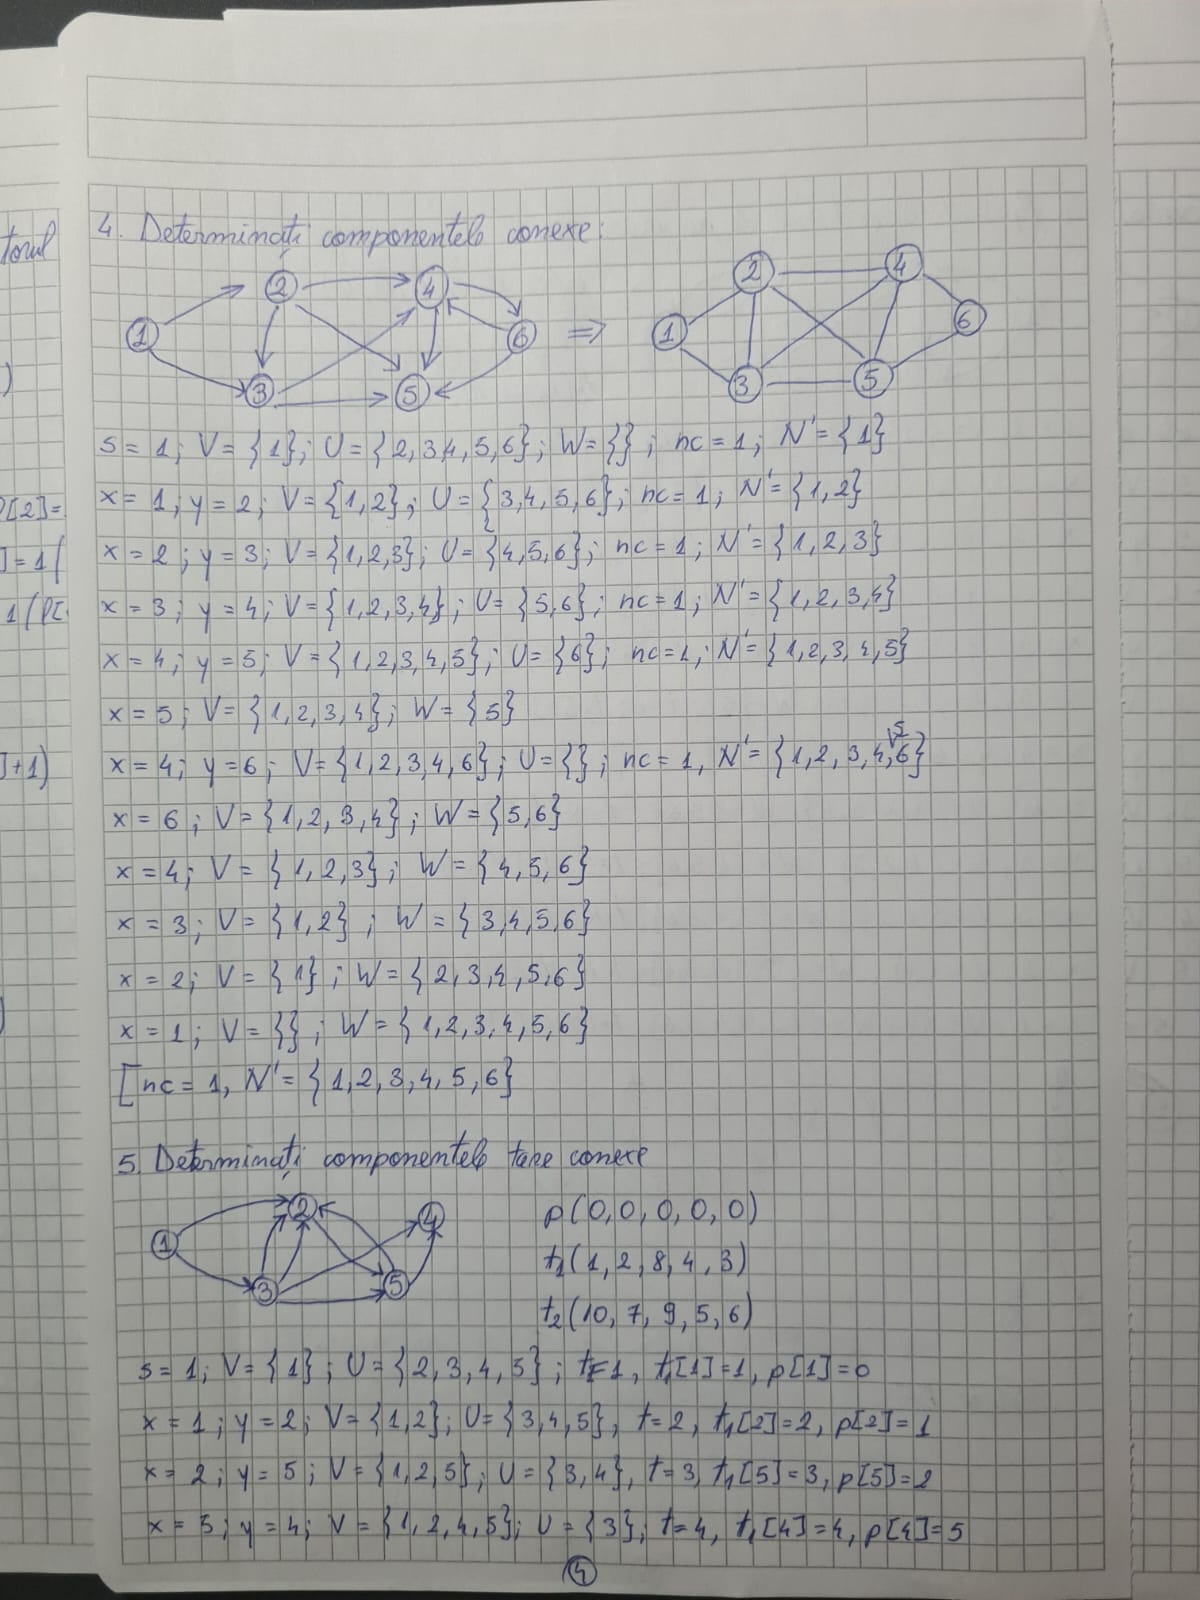 torul
)
p[2]=
]=1(
1(p[
]+1)
)
4. Determinați componentele conexe:
1 2 3 4 5 6 => 1 2 3 4 5 6
s=1; V={1}; U={2,3,4,5,6}; W={}; nc=1; N'={1}
x=1; y=2; V={1,2}; U={3,4,5,6}; nc=1; N'={1,2}
x=2; y=3; V={1,2,3}; U={4,5,6}; nc=1; N'={1,2,3}
x=3; y=4; V={1,2,3,4}; U={5,6}; nc=1; N'={1,2,3,4}
x=4; y=5; V={1,2,3,4,5}; U={6}; nc=1; N'={1,2,3,4,5}
x=5; V={1,2,3,4}; W={5}
x=4; y=6; V={1,2,3,4,6}; U={}; nc=1, N'={1,2,3,4,5,6}
x=6; V={1,2,3,4}; W={5,6}
x=4; V={1,2,3}; W={4,5,6}
x=3; V={1,2}; W={3,4,5,6}
x=2; V={1}; W={2,3,4,5,6}
x=1; V={}; W={1,2,3,4,5,6}
[nc=1, N'={1,2,3,4,5,6}
5. Determinați componentele tare conexe
1 2 3 4 5
p(0,0,0,0,0)
t1(1,2,8,4,3)
t2(10,7,9,5,6)
s=1; V={1}; U={2,3,4,5}; t=1, t1[1]=1, p[1]=0
x=1; y=2; V={1,2}; U={3,4,5}, t=2, t1[2]=2, p[2]=1
x=2; y=5; V={1,2,5}; U={3,4}, t=3, t1[5]=3, p[5]=2
x=5; y=4; V={1,2,4,5}; U={3}; t=4, t1[4]=4, p[4]=5
4